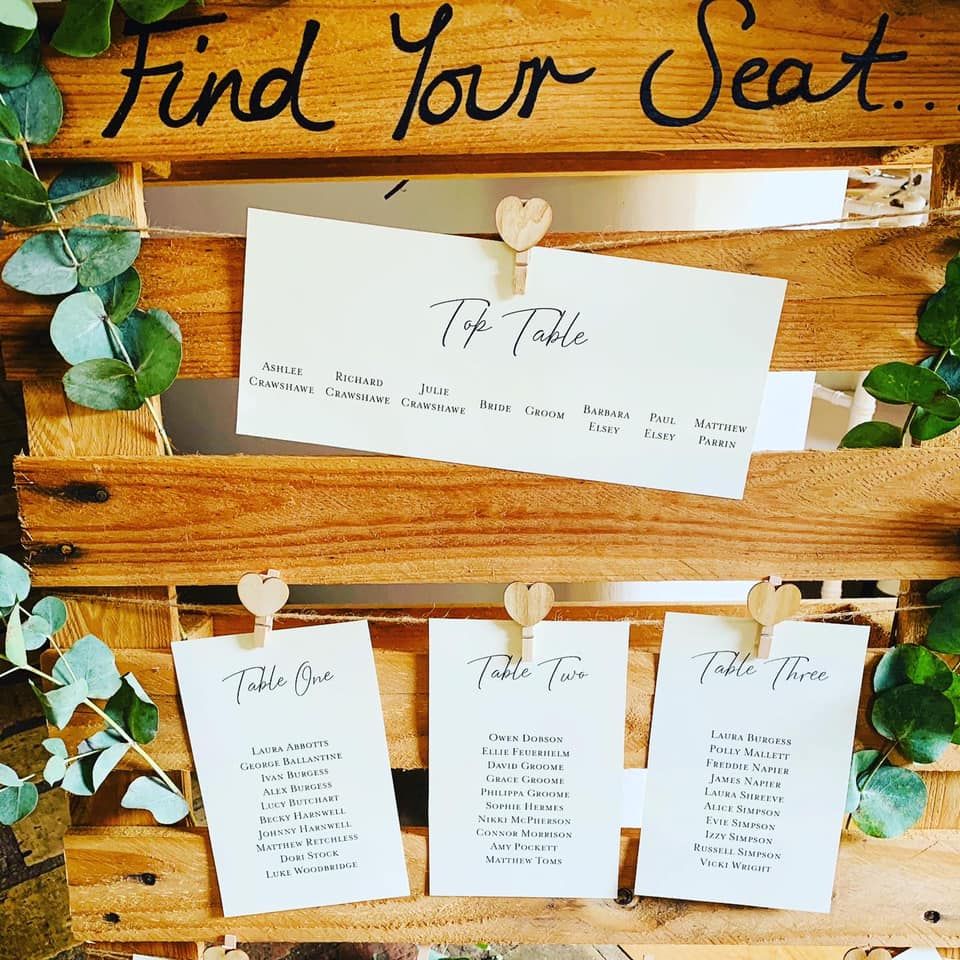 Find Your Seat...
Top Table
Ashlee Crawshawe
Richard Crawshawe
Julie Crawshawe
Bride
Groom
Barbara Elsey
Paul Elsey
Matthew Parrin
Table One
Laura Abbotts
George Ballantine
Ivan Burgess
Alex Burgess
Lucy Butchart
Becky Harnwell
Johnny Harnwell
Matthew Retchless
Dori Stock
Luke Woodbridge
Table Two
Owen Dobson
Ellie Feuerhelm
David Groome
Grace Groome
Philippa Groome
Sophie Hermes
Nikki McPherson
Connor Morrison
Amy Pockett
Matthew Toms
Table Three
Laura Burgess
Polly Mallett
Freddie Napier
James Napier
Laura Shreeve
Alice Simpson
Evie Simpson
Izzy Simpson
Russell Simpson
Vicki Wright